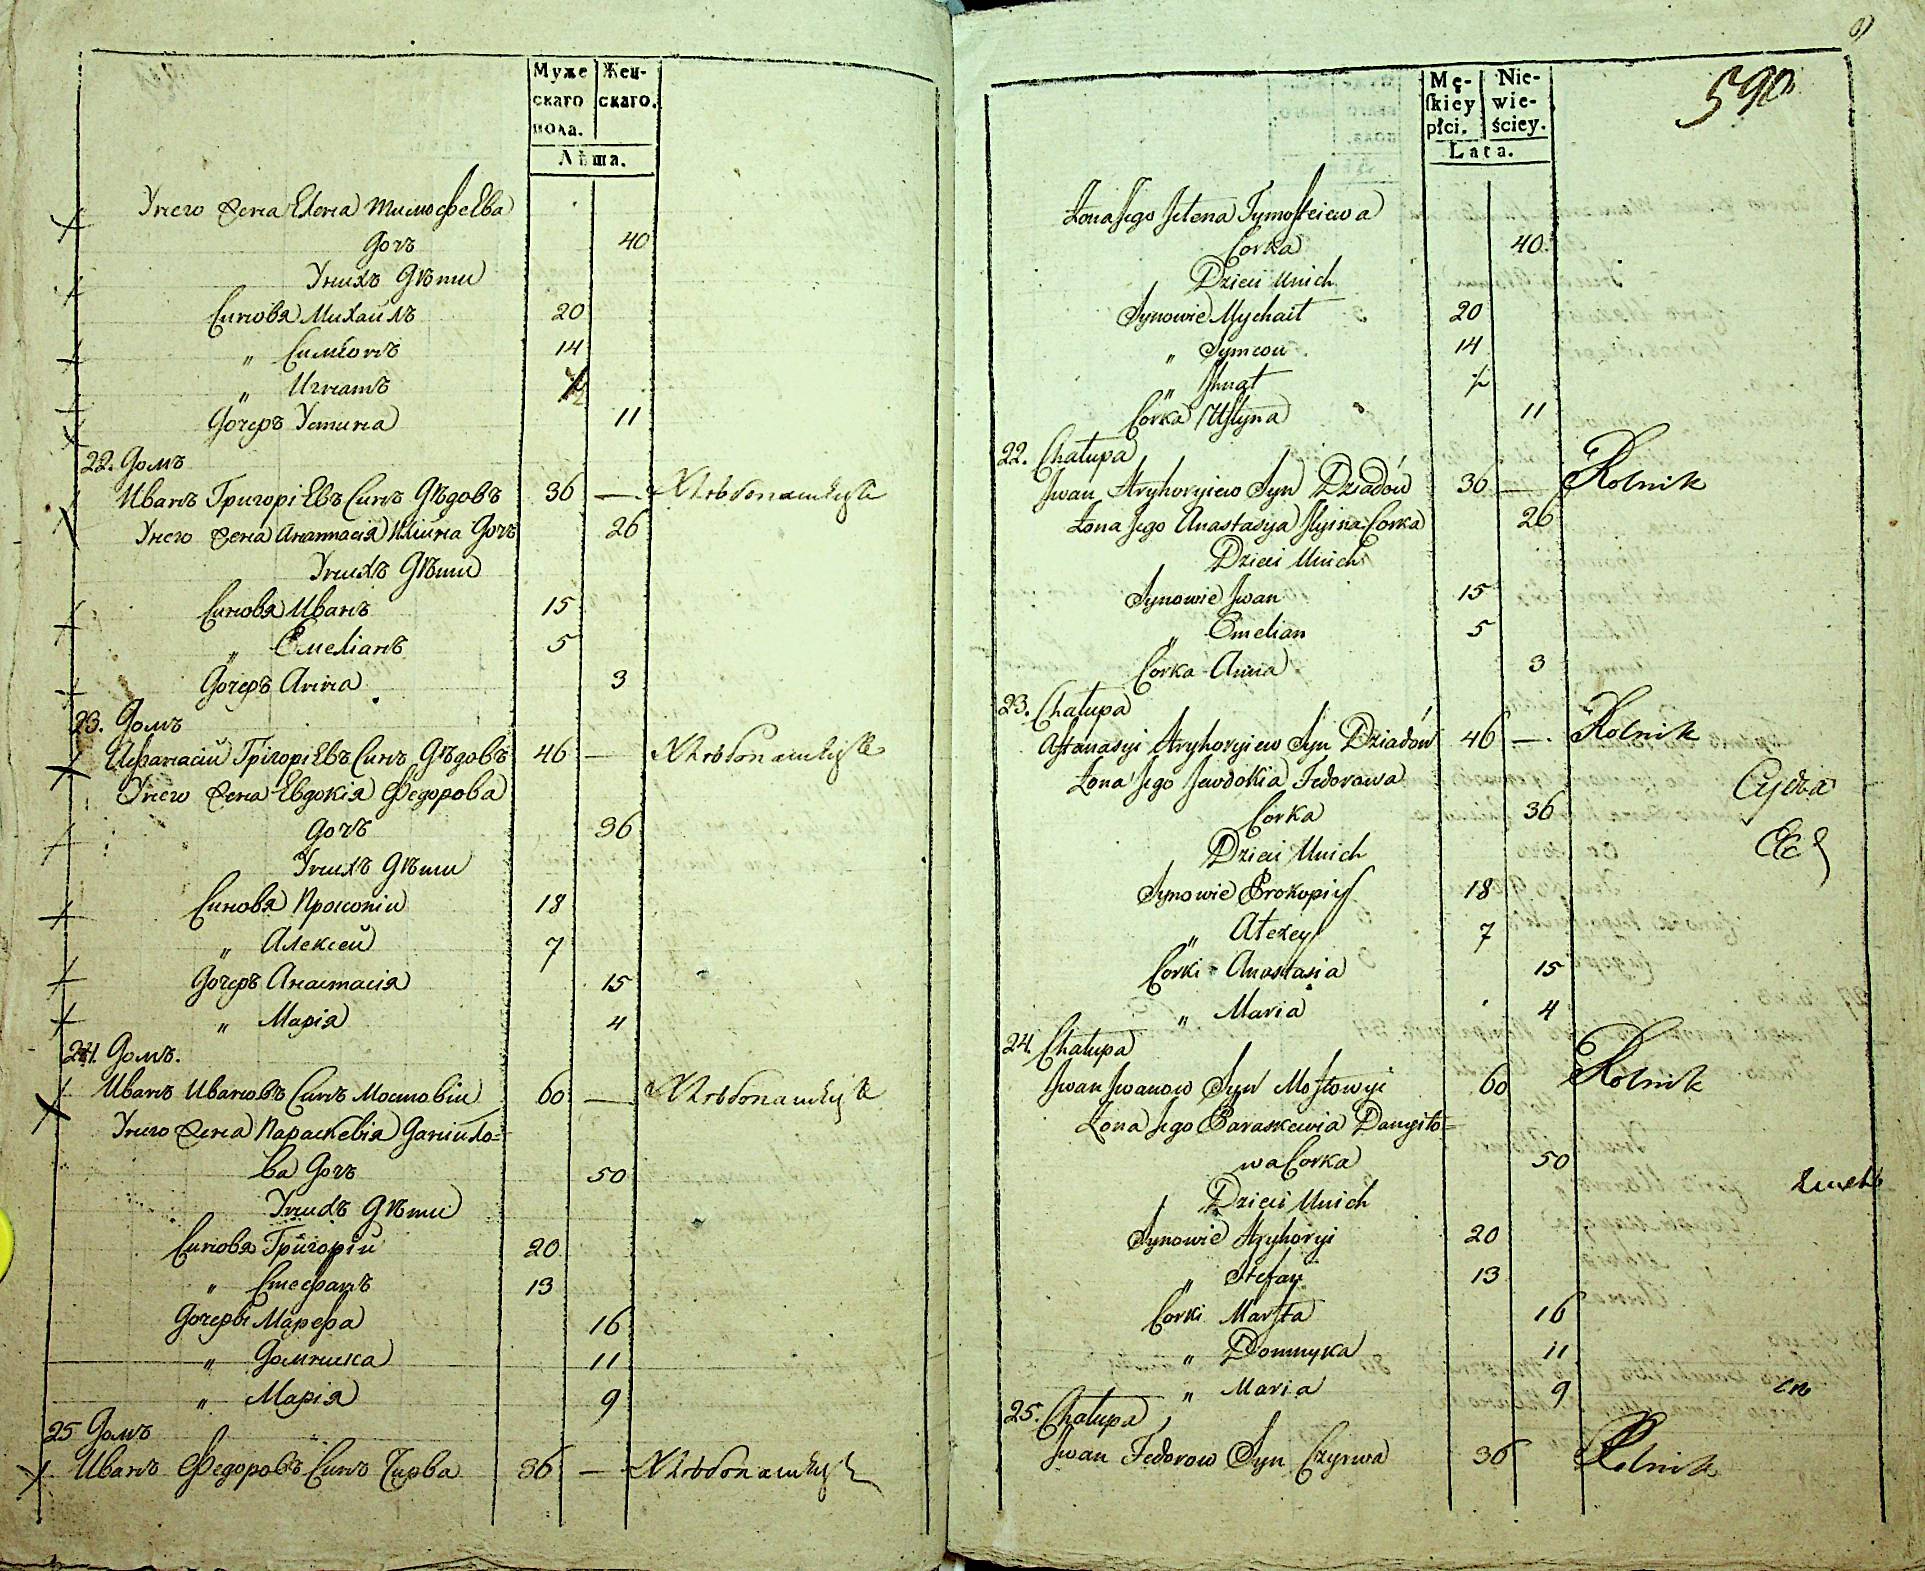 Муже Жен-
скаго скаго.
пола.
Лѣта.
Унего Жена Елена Тимофеева
Дочъ 40
Унихъ Дѣти
Синовя Михаилъ 20
„ Симіонъ 14
„ Игнатъ
Дочеръ Устина 11
22. Домъ
Иванъ Григоріевъ Синъ Дѣдовъ 36 — Хлѣбопашецъ
Унего Жена Анатасія Иліина Дочъ 26
Унихъ Дѣти
Синовя Иванъ 15
„ Емеліанъ 5
Дочеръ Анна 3
23. Домъ
Афанасій Григоріевъ Синъ Дѣдовъ 46 — Хлѣбопашецъ
Унего Жена Евдокія Федорова
Дочъ 36
Унихъ Дѣти
Синовя Прокопій 18
„ Алексей 7
Дочеръ Анастасія 15
„ Марія 4
24. Домъ.
Иванъ Ивановъ Синъ Мостовій 60 — Хлѣбопашецъ
Унего Жена Параскевія Даніило=
ва Дочъ 50
Унихъ Дѣти
Синовя Григорій 20
„ Стефанъ 13
Дочеръі Марфа 16
„ Домника 11
„ Марія 9
25 Домъ
Иванъ Федоровъ Синъ Чирва 36 — Хлѣбопашецъ
590
Mę- Nie-
skiey wie-
płci. ściey.
Lata.
Żona Jego Jelena Tymofteiewa
Corka 40.
Dzieci Unich
Synowie Mychaił 20
„ Symeon 14
„ Ihnat
Corka Ustyna 11
22. Chałupa
Jwan Hryhoryiew Syn Dziadów 36 — Rolnik
Żona Jego Anastasya Ilyina Corka 26
Dzieci Unich
Synowie Jwan 15
„ Emelian 5
Corka Anna 3
23. Chałupa
Aftanasyi Hryhoryiew Syn Dziadów 46 — Rolnik
Żona Jego Jewdokia Fedorowa
Corka 36
Dzieci Unich
Synowie Prokopiy 18
„ Alexey 7
Corki Anastasia 15
„ Maria 4
24. Chałupa
Jwan Jwanow Syn Mostowyi 60 Rolnik
Żona Jego Paraskewia Danyiło=
wa Corka 50
Dzieci Unich
Synowie Hryhoryi 20
„ Stefan 13
Corki Marfta 16
„ Domnyka 11
„ Maria 9
25. Chałupa
Jwan Fedorow Syn Czyrwa 36 Rolnik